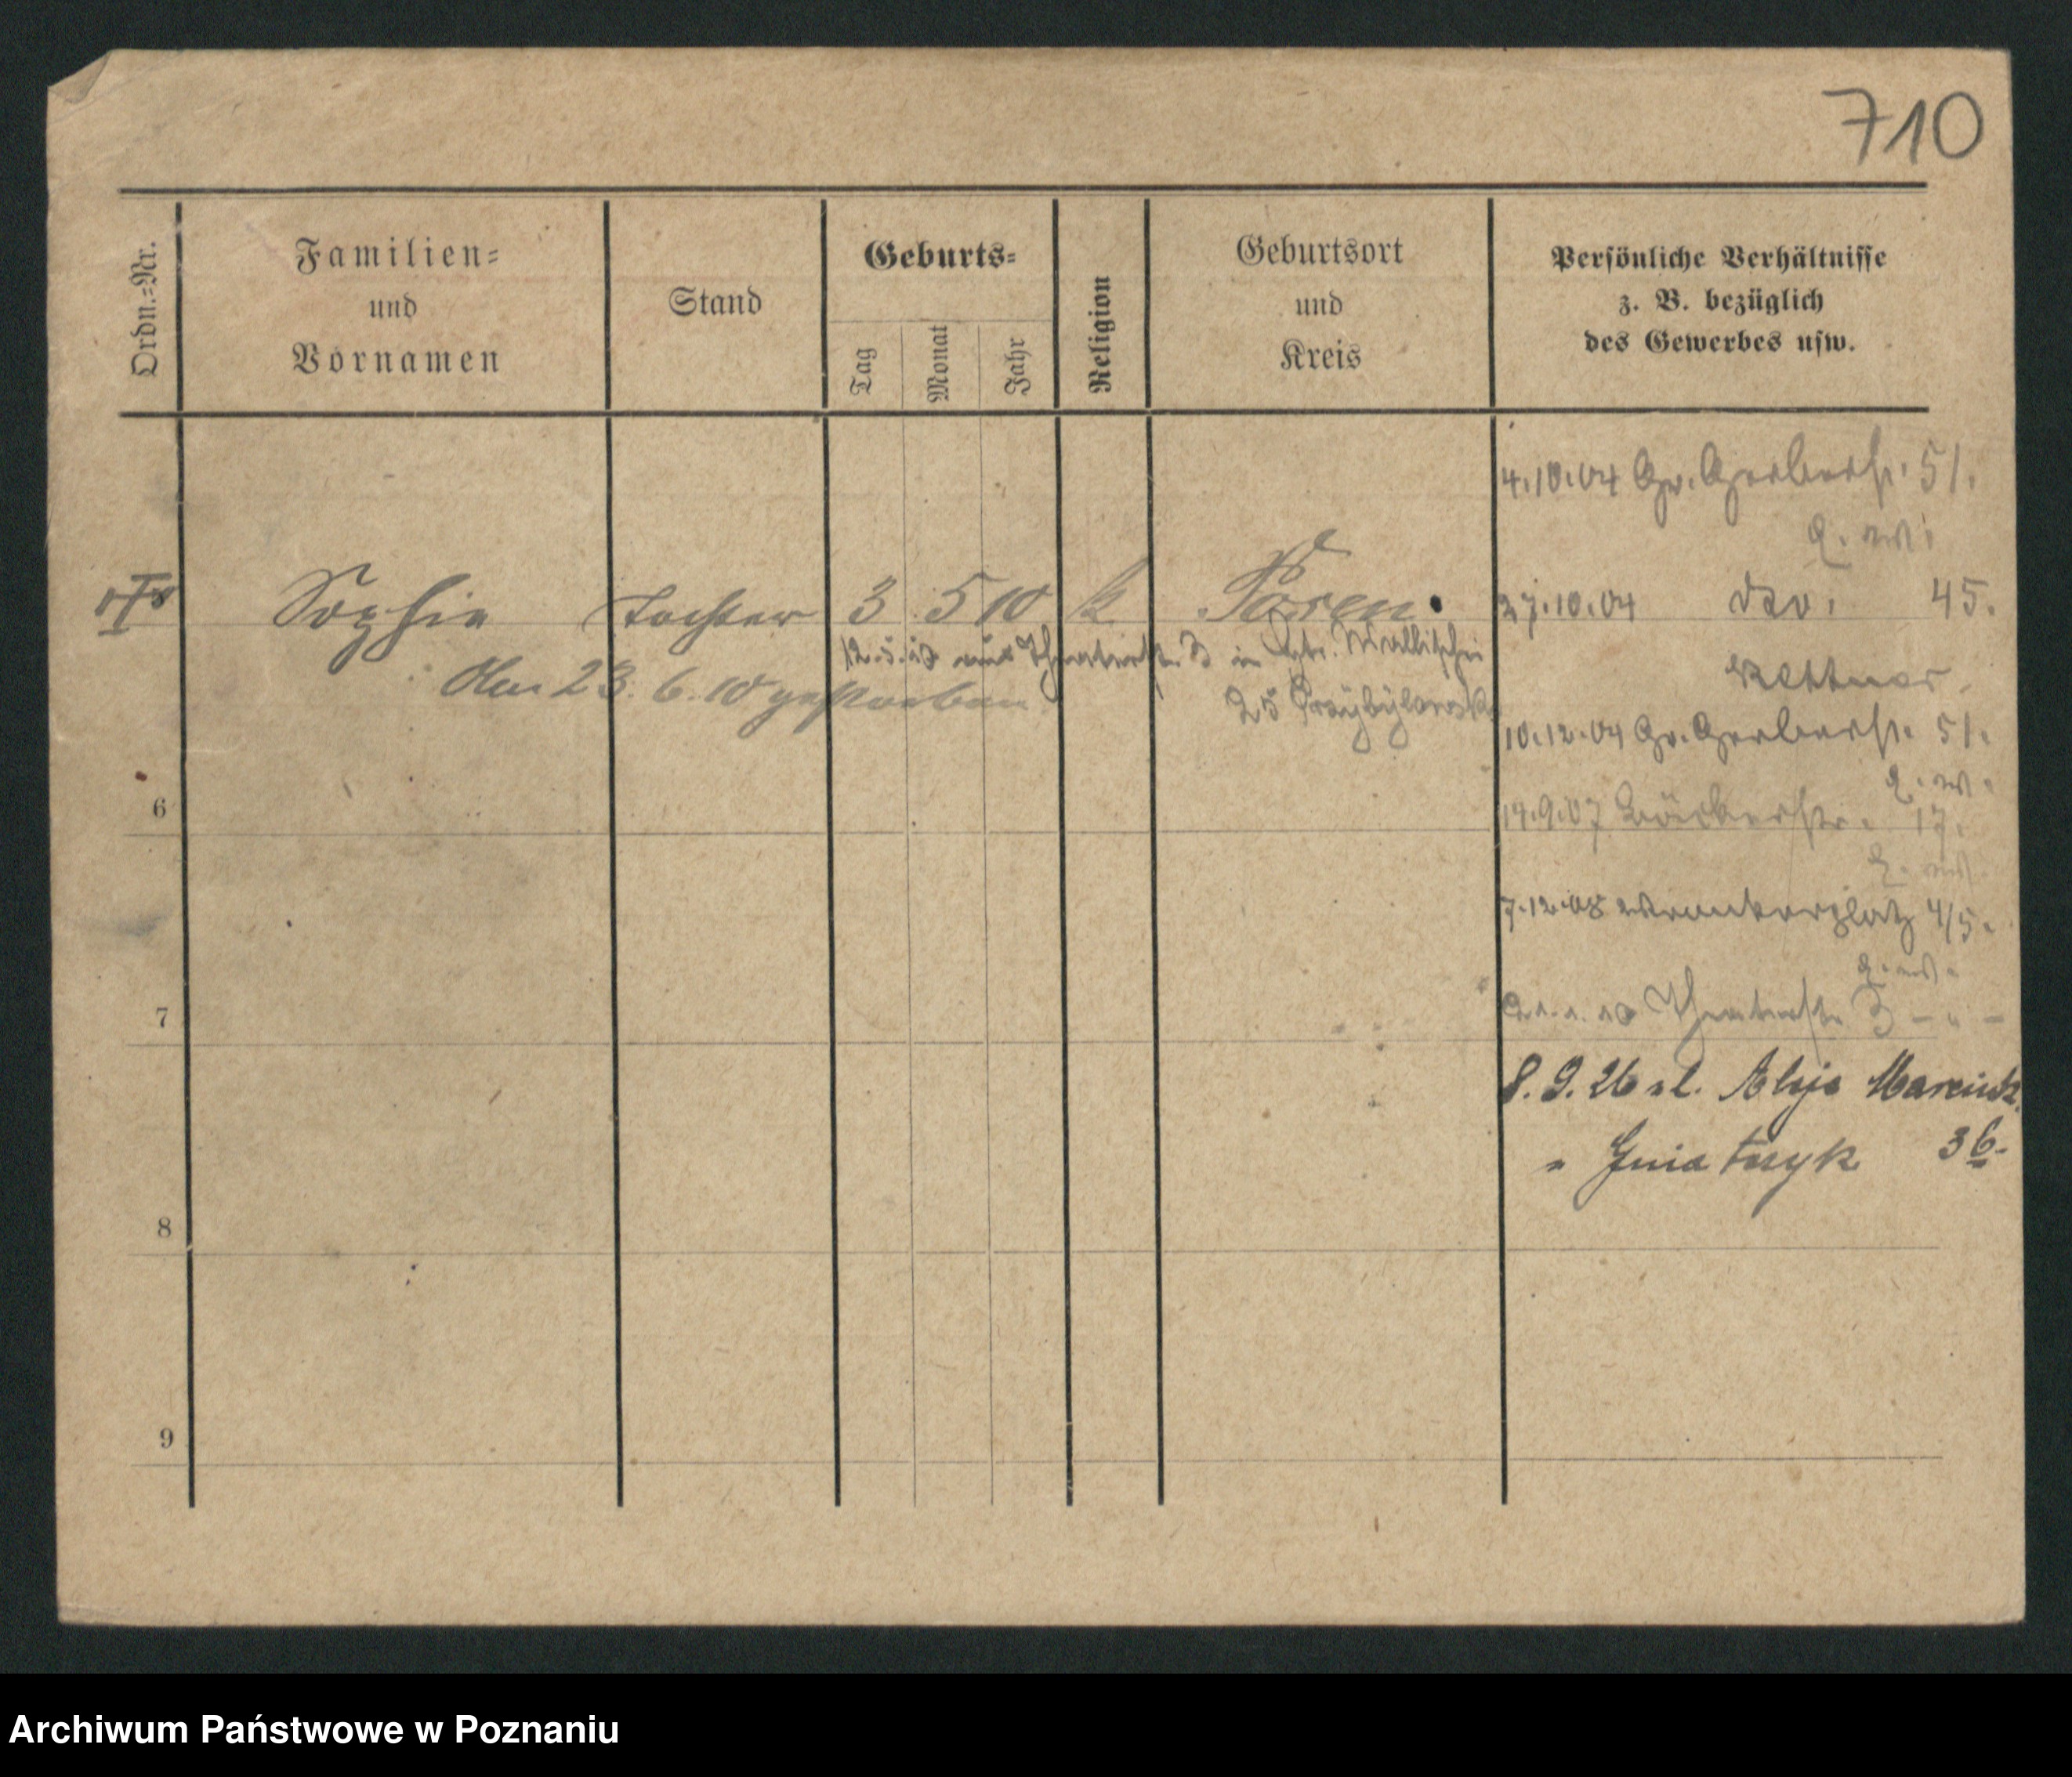 710
Ordn.=Nr.
Familien=
und
Vornamen
Stand
Geburts=
Tag
Monat
Jahr
Religion
Geburtsort
und
Kreis
Persönliche Verhältnisse
z. B. bezüglich
des Gewerbes usw.
4.10.04 Gr. Gerberstr. 51.
Sophie Tochter 3 5 10 k Posen.
27.10.04 dto. 45.
12.5.10 aus Theaterstr. 3 in Wallischei
Kettner
Den 23. 6. 10 gestorben
25
10.12.04 Gr. Gerberstr. 51.
6
14.9.07 Bäckerstr. 17.
7.12.08 Wronkerplatz 4/5.
7
Theaterstr. 3 - " -
8. 9. 26 Aleje Marcink.
" Gniatczyk 36.
8
9
Archiwum Państwowe w Poznaniu